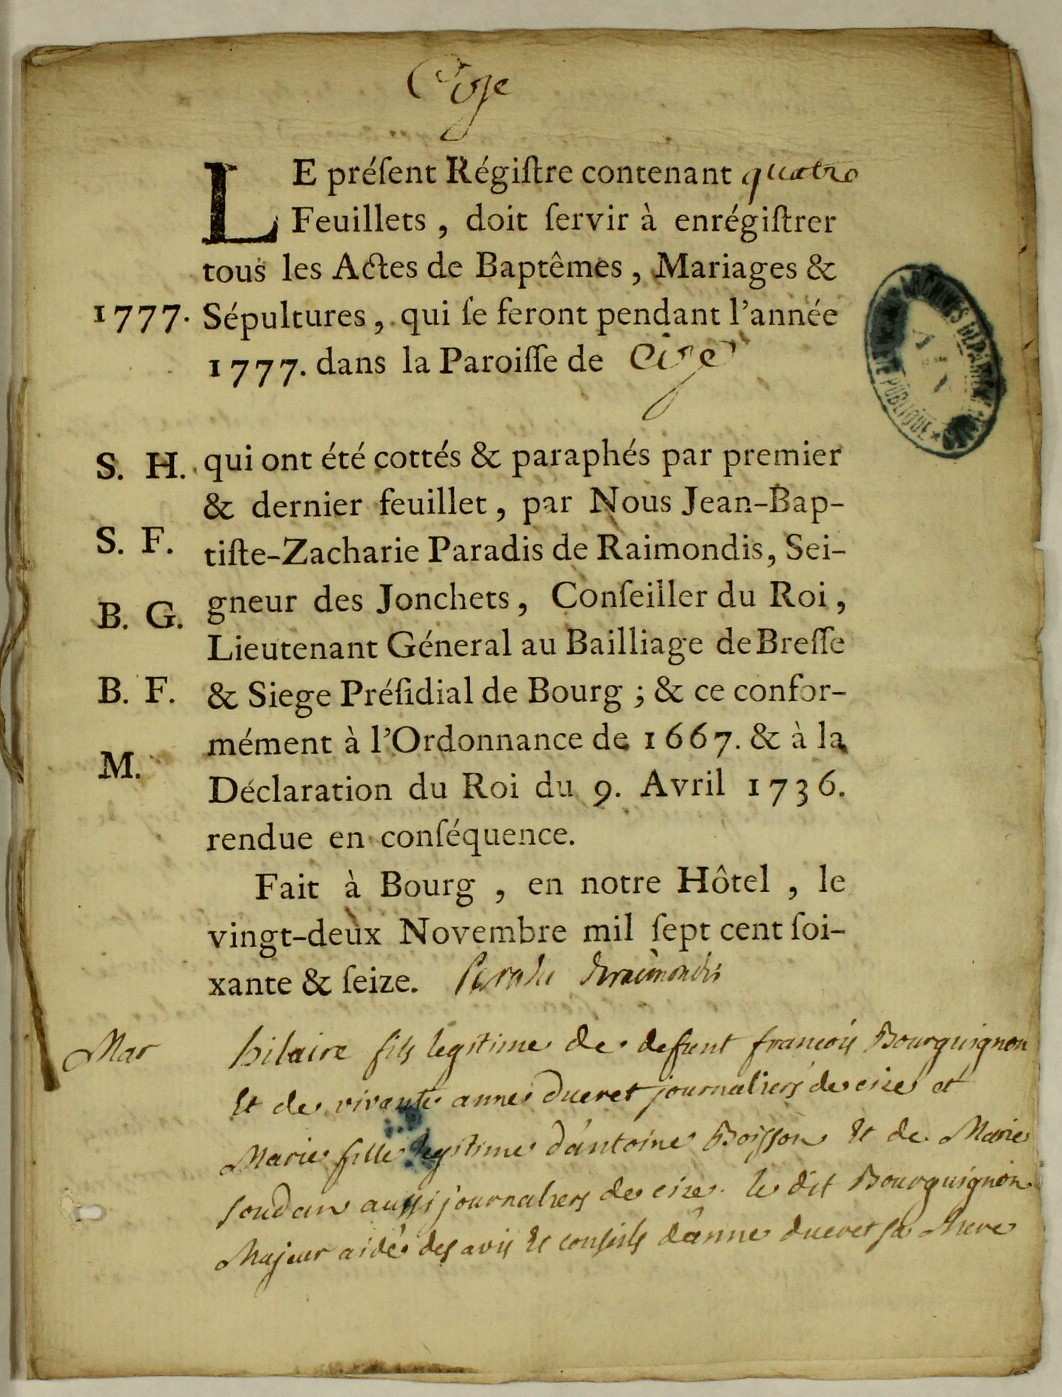 Cize
LE préſent Régiſtre contenant quatre
Feuillets, doit ſervir à enrégiſtrer
tous les Actes de Baptêmes, Mariages &
1777. Sépultures, qui ſe feront pendant l'année
1777. dans la Paroiſſe de Cize
S. H. qui ont été cottés & paraphés par premier
& dernier feuillet, par Nous Jean-Bap-
S. F. tiſte-Zacharie Paradis de Raimondis, Sei-
B. G. gneur des Jonchets, Conſeiller du Roi,
Lieutenant Géneral au Bailliage de Breſſe
B. F. & Siege Préſidial de Bourg ; & ce confor-
mément à l'Ordonnance de 1667. & à la
M. Déclaration du Roi du 9. Avril 1736.
rendue en conſéquence.
Fait à Bourg, en notre Hôtel, le
vingt-deux Novembre mil ſept cent ſoi-
xante & ſeize. Paradis deraimondis
Mar hilaire fils legitime de defunt francois Bourguignon
Et de vivante anne ducret journaliers de cize et
Marie fille legitime d'antoine Boisson Et de Marie
soudan aussi journaliers de cize. le dit Bourguignon
Majeur aidé des avis Et conseils d'anne ducret sa Mere
ARCHIVES DEPARTEM
AIN
PUBLIQUE